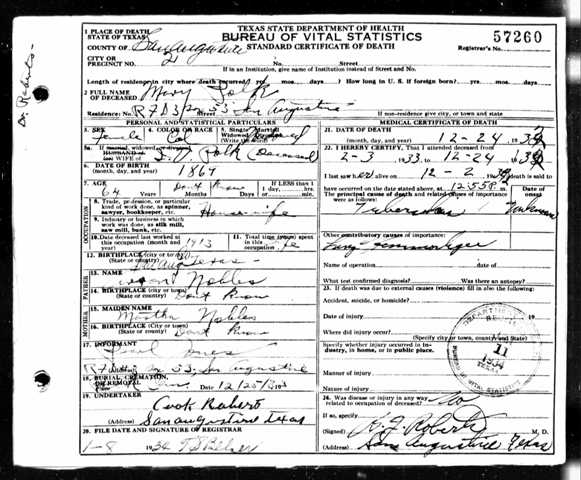 TEXAS STATE DEPARTMENT OF HEALTH
BUREAU OF VITAL STATISTICS
STANDARD CERTIFICATE OF DEATH
57260
Registrar's No.
1 PLACE OF DEATH
STATE OF TEXAS
COUNTY OF San Augustine
CITY OR
PRECINCT NO. 2
No. Street
If in an Institution, give name of Institution instead of Street and No.
Length of residence in city where death occurred yrs. mos. days? How long in U. S. if foreign born? yrs. mos. days
2 FULL NAME
OF DECEASED Mary Polk
Residence: No. Street
If non-residence give city, or town and state
Dr Roberts
PERSONAL AND STATISTICAL PARTICULARS
3. SEX
female
4. COLOR OR RACE
Col
5. Single, Married
Widowed
(Write the word)
5a. If married, widowed or divorced
HUSBAND of
(or) WIFE of Polk (Deceased)
6. DATE OF BIRTH
(month, day, year) 1867
7. AGE
64 Years Months Days
Don't Know
If LESS than
1 day, hrs.
or min.
OCCUPATION
8. Trade, profession, or particular
kind of work done, as spinner,
sawyer, bookkeeper, etc.
House-wife
9. Industry or business in which
work was done, as silk mill,
saw mill, bank, etc.
10. Date deceased last worked at
this occupation (month and
year) 1913
11. Total time (years)
spent in this
occupation life
12. BIRTHPLACE (city or town)
(State or country) Texas
FATHER
13. NAME
Nobles
14. BIRTHPLACE (city or town)
(State or country) Don't Know
MOTHER
15. MAIDEN NAME
Martha Nobles
16. BIRTHPLACE (city or town)
(State or country) Don't Know
17 INFORMANT
Pearl Jones
(Address) San Augustine
18. BURIAL, CREMATION,
OR REMOVAL
Date 12/25/1933
19. UNDERTAKER
Cook Robert
(Address) San augustine Texas
20. FILE DATE AND SIGNATURE OF REGISTRAR
1-8 1934
MEDICAL CERTIFICATE OF DEATH
21. DATE OF DEATH
(month, day, year) 12-24, 1933
22. I HEREBY CERTIFY, That I attended deceased from
2-3 1933 to 12-24 1933
I last saw alive on 12-2 1933, death is said to
have occurred on the date stated above, at 12:55 m.
The principal cause of death and related causes of importance
were as follows:
Date of
onset
Tuberculosis Unknown
Other contributory causes of importance:
Name of operation Date of
What test confirmed diagnosis? Was there an autopsy?
23. If death was due to external causes (violence) fill in also the following:
Accident, suicide, or homicide?
Date of injury 19
Where did injury occur?
(Specify city, town or county and State)
Specify whether injury occurred in in-
dustry, in home, or in public place.
Manner of injury
Nature of injury
24. Was disease or injury in any way
related to occupation of deceased? No
If so, specify
(Signed) Roberts M. D.
(Address) San Augustine Texas
11
1934
BUREAU OF VITAL STATISTICS